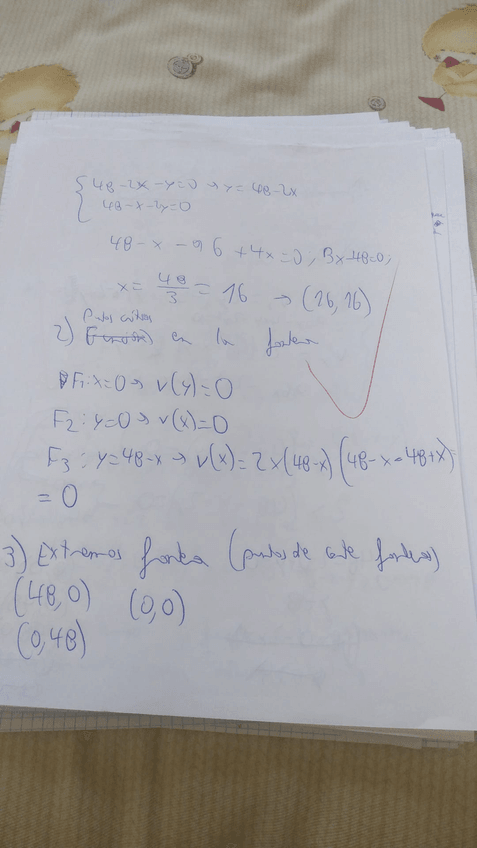 48-2x-y=0 → y=48-2x
48-x-2y=0
48-x-96+4x=0; 3x-48=0;
x=48/3=16 → (16,16)
Ptos críticos
2) en la frontera
F1: x=0 → v(y)=0
F2: y=0 → v(x)=0
F3: y=48-x → v(x)=2x(48-x)(48-x-48+x)
=0
3) Extremos frontera (puntos de corte fronteras)
(48,0) (0,0)
(0,48)